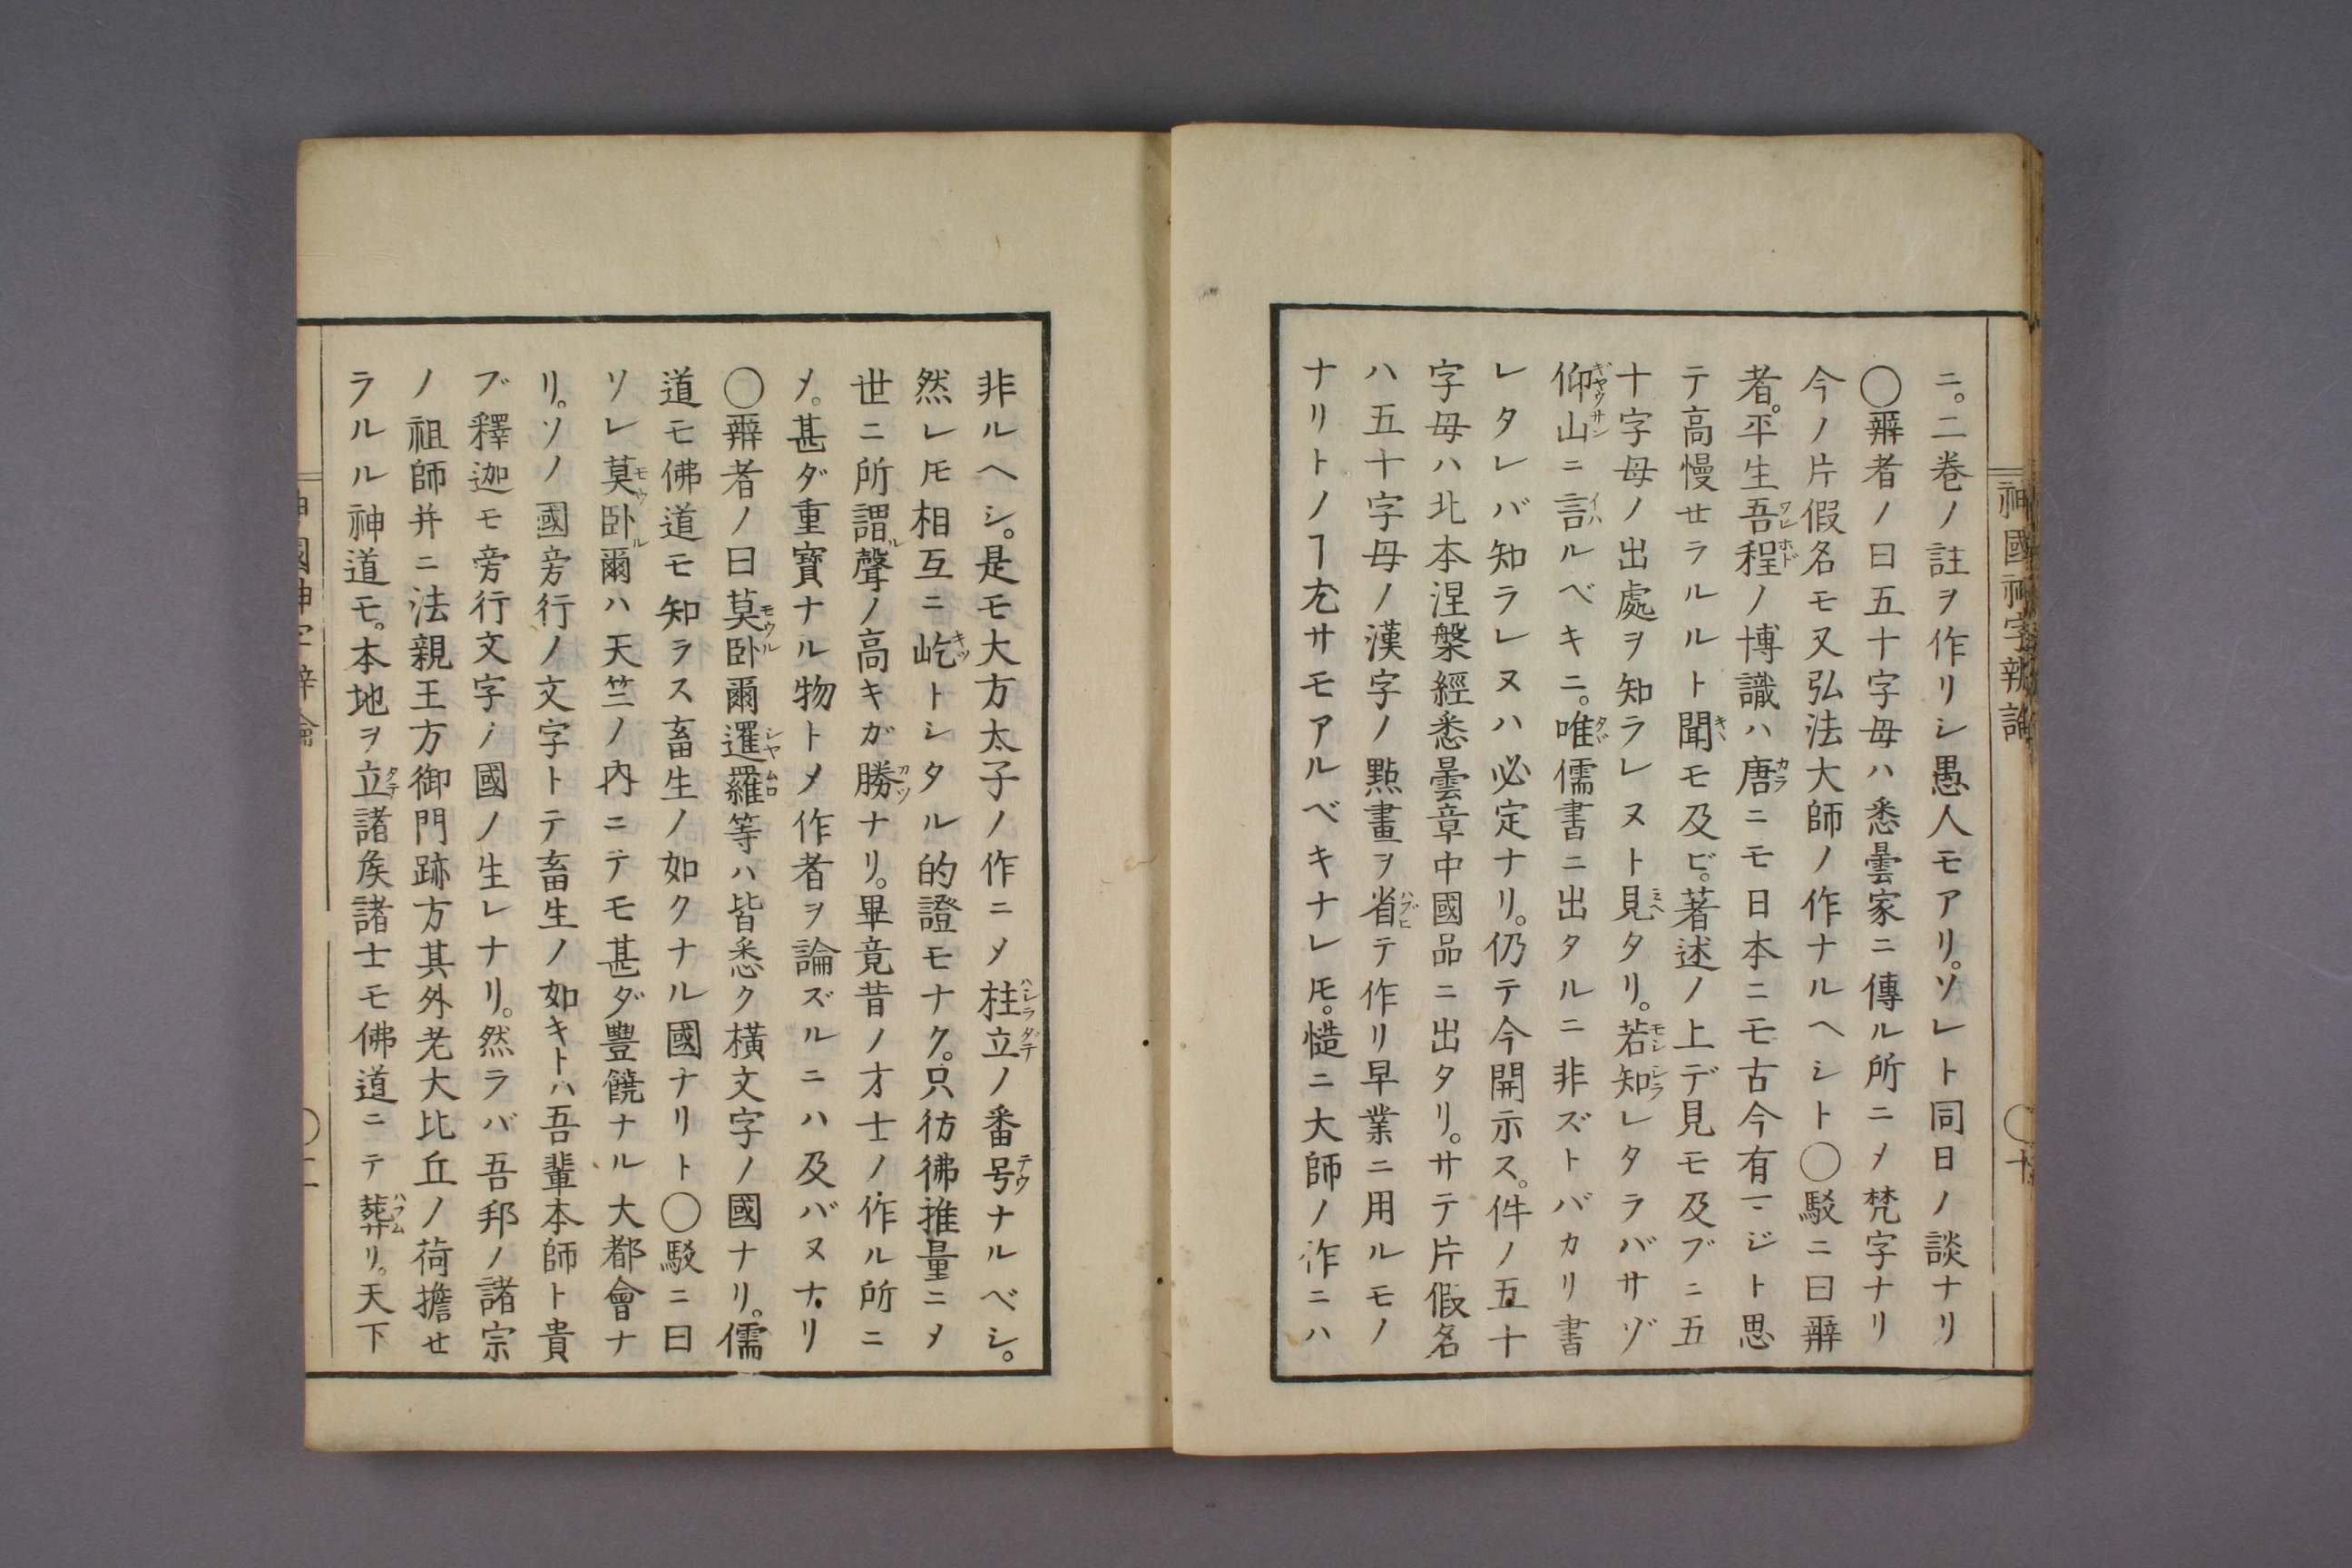 神國神字辨論
〇十
ニ。二巻ノ註ヲ作リシ愚人モアリ。ソレト同日ノ談ナリ
〇辨者ノ曰五十字母ハ悉曇家ニ傳ル所ニ〆梵字ナリ
今ノ片假名モ又弘法大師ノ作ナルヘシト〇駁ニ曰辨
者。平生吾程ノ博識ハ唐ニモ日本ニモ古今有マジト思
テ高慢セラルルト聞モ及ビ。著述ノ上デ見モ及ブニ五
十字母ノ出處ヲ知ラレヌト見タリ。若知レタラバサゾ
仰山ニ言ルベキニ。唯儒書ニ出タルニ非ズトバカリ書
レタレバ知ラレヌハ必定ナリ。仍テ今開示ス。件ノ五十
字母ハ北本涅槃經悉曇章中國品ニ出タリ。サテ片假名
ハ五十字母ノ漢字ノ點畫ヲ省テ作リ早業ニ用ルモノ
ナリトノヿ尤サモアルベキナレ𪜈。慥ニ大師ノ作ニハ
非ルヘシ。是モ大方太子ノ作ニ〆柱立ノ番号ナルベシ。
然レ𪜈相互ニ屹トシタル的證モナク。只彷彿推量ニ〆
世ニ所謂聲ノ高キガ勝ナリ。畢竟昔ノ才士ノ作ル所ニ
〆。甚ダ重寶ナル物ト〆作者ヲ論ズルニハ及バヌナリ
〇辨者ノ曰莫卧爾暹羅等ハ皆悉ク横文字ノ國ナリ。儒
道モ佛道モ知ラス畜生ノ如クナル國ナリト〇駁ニ曰
ソレ莫卧爾ハ天竺ノ内ニテモ甚ダ豐饒ナル大都會ナ
リ。ソノ國旁行ノ文字トテ畜生ノ如キトハ吾輩本師ト貴
ブ釋迦モ旁行文字ノ國ノ生レナリ。然ラバ吾邦ノ諸宗
ノ祖師并ニ法親王方御門跡方其外老大比丘ノ荷擔セ
ラルル神道モ。本地ヲ立諸矦諸士モ佛道ニテ葬リ。天下